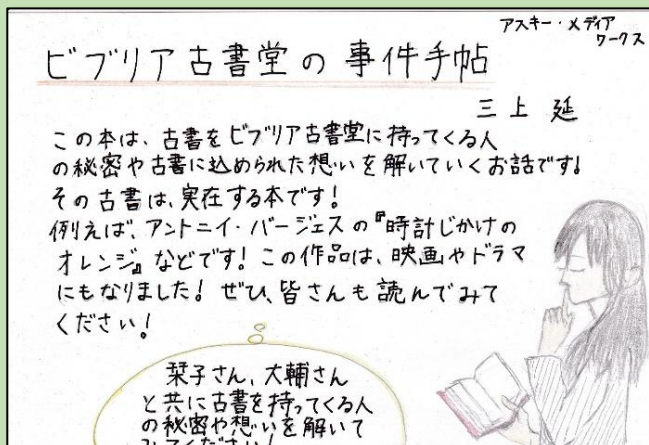 アスキー・メディア
ワークス
ビブリア古書堂の事件手帖
三上 延
この本は、古書をビブリア古書堂に持ってくる人
の秘密や古書に込められた想いを解いていくお話です!
その古書は、実在する本です!
例えば、アントニイ・バージェスの『時計じかけの
オレンジ』などです!この作品は、映画やドラマ
にもなりました!ぜひ、皆さんも読んでみて
ください!
栞子さん、大輔さん
と共に古書を持ってくる人
の秘密や想いを解いて
みてください!